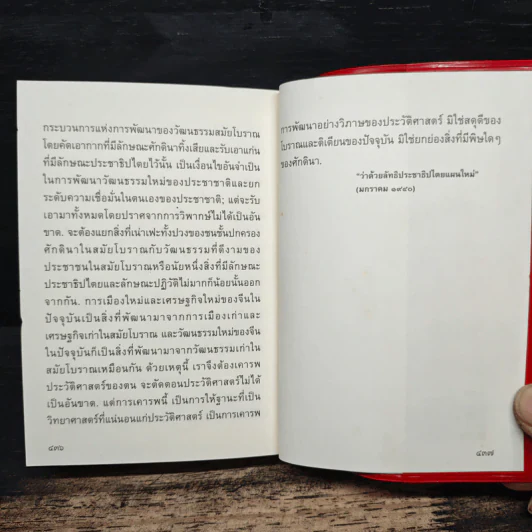 กระบวนการแห่งการพัฒนาของวัฒนธรรมสมัยโบราณ
โดยคัดเอากากที่มีลักษณะศักดินาทิ้งเสียและรับเอาแก่น
ที่มีลักษณะประชาธิปไตยไว้นั้น เป็นเงื่อนไขอันจำเป็น
ในการพัฒนาวัฒนธรรมใหม่ของประชาชาติและยก
ระดับความเชื่อมั่นในตนเองของประชาชาติ; แต่จะรับ
เอามาทั้งหมดโดยปราศจากการวิพากษ์ไม่ได้เป็นอัน
ขาด. จะต้องแยกสิ่งที่เน่าเฟะทั้งปวงของชนชั้นปกครอง
ศักดินาในสมัยโบราณกับวัฒนธรรมที่ดีงามของ
ประชาชนในสมัยโบราณหรือนัยหนึ่งสิ่งที่มีลักษณะ
ประชาธิปไตยและลักษณะปฏิวัติไม่มากก็น้อยนั้นออก
จากกัน. การเมืองใหม่และเศรษฐกิจใหม่ของจีนใน
ปัจจุบันเป็นสิ่งที่พัฒนามาจากการเมืองเก่าและ
เศรษฐกิจเก่าในสมัยโบราณ และวัฒนธรรมใหม่ของจีน
ในปัจจุบันก็เป็นสิ่งที่พัฒนามาจากวัฒนธรรมเก่าใน
สมัยโบราณเหมือนกัน ด้วยเหตุนี้ เราจึงต้องเคารพ
ประวัติศาสตร์ของตน จะตัดตอนประวัติศาสตร์ไม่ได้
เป็นอันขาด. แต่การเคารพนี้ เป็นการให้ฐานะที่เป็น
วิทยาศาสตร์ที่แน่นอนแก่ประวัติศาสตร์ เป็นการเคารพ
๔๓๖
การพัฒนาอย่างวิภาษของประวัติศาสตร์ มิใช่สดุดีของ
โบราณและติเตียนของปัจจุบัน มิใช่ยกย่องสิ่งที่มีพิษใดๆ
ของศักดินา.
“ว่าด้วยลัทธิประชาธิปไตยแผนใหม่”
(มกราคม ๑๙๔๐)
๔๓๗